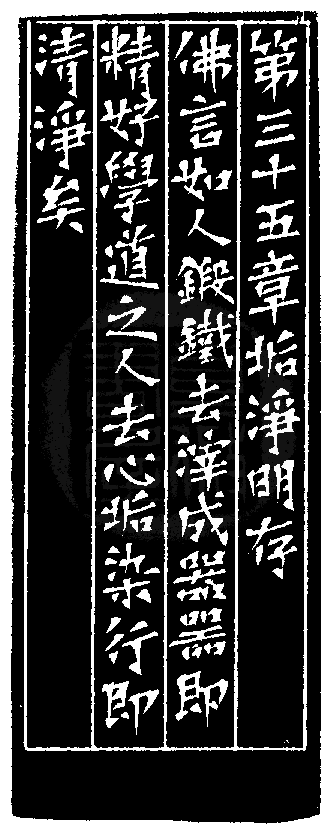 第三十五章垢淨明存
佛言如人鍛鐵去滓成器器即
精好學道之人去心垢染行即
清淨矣